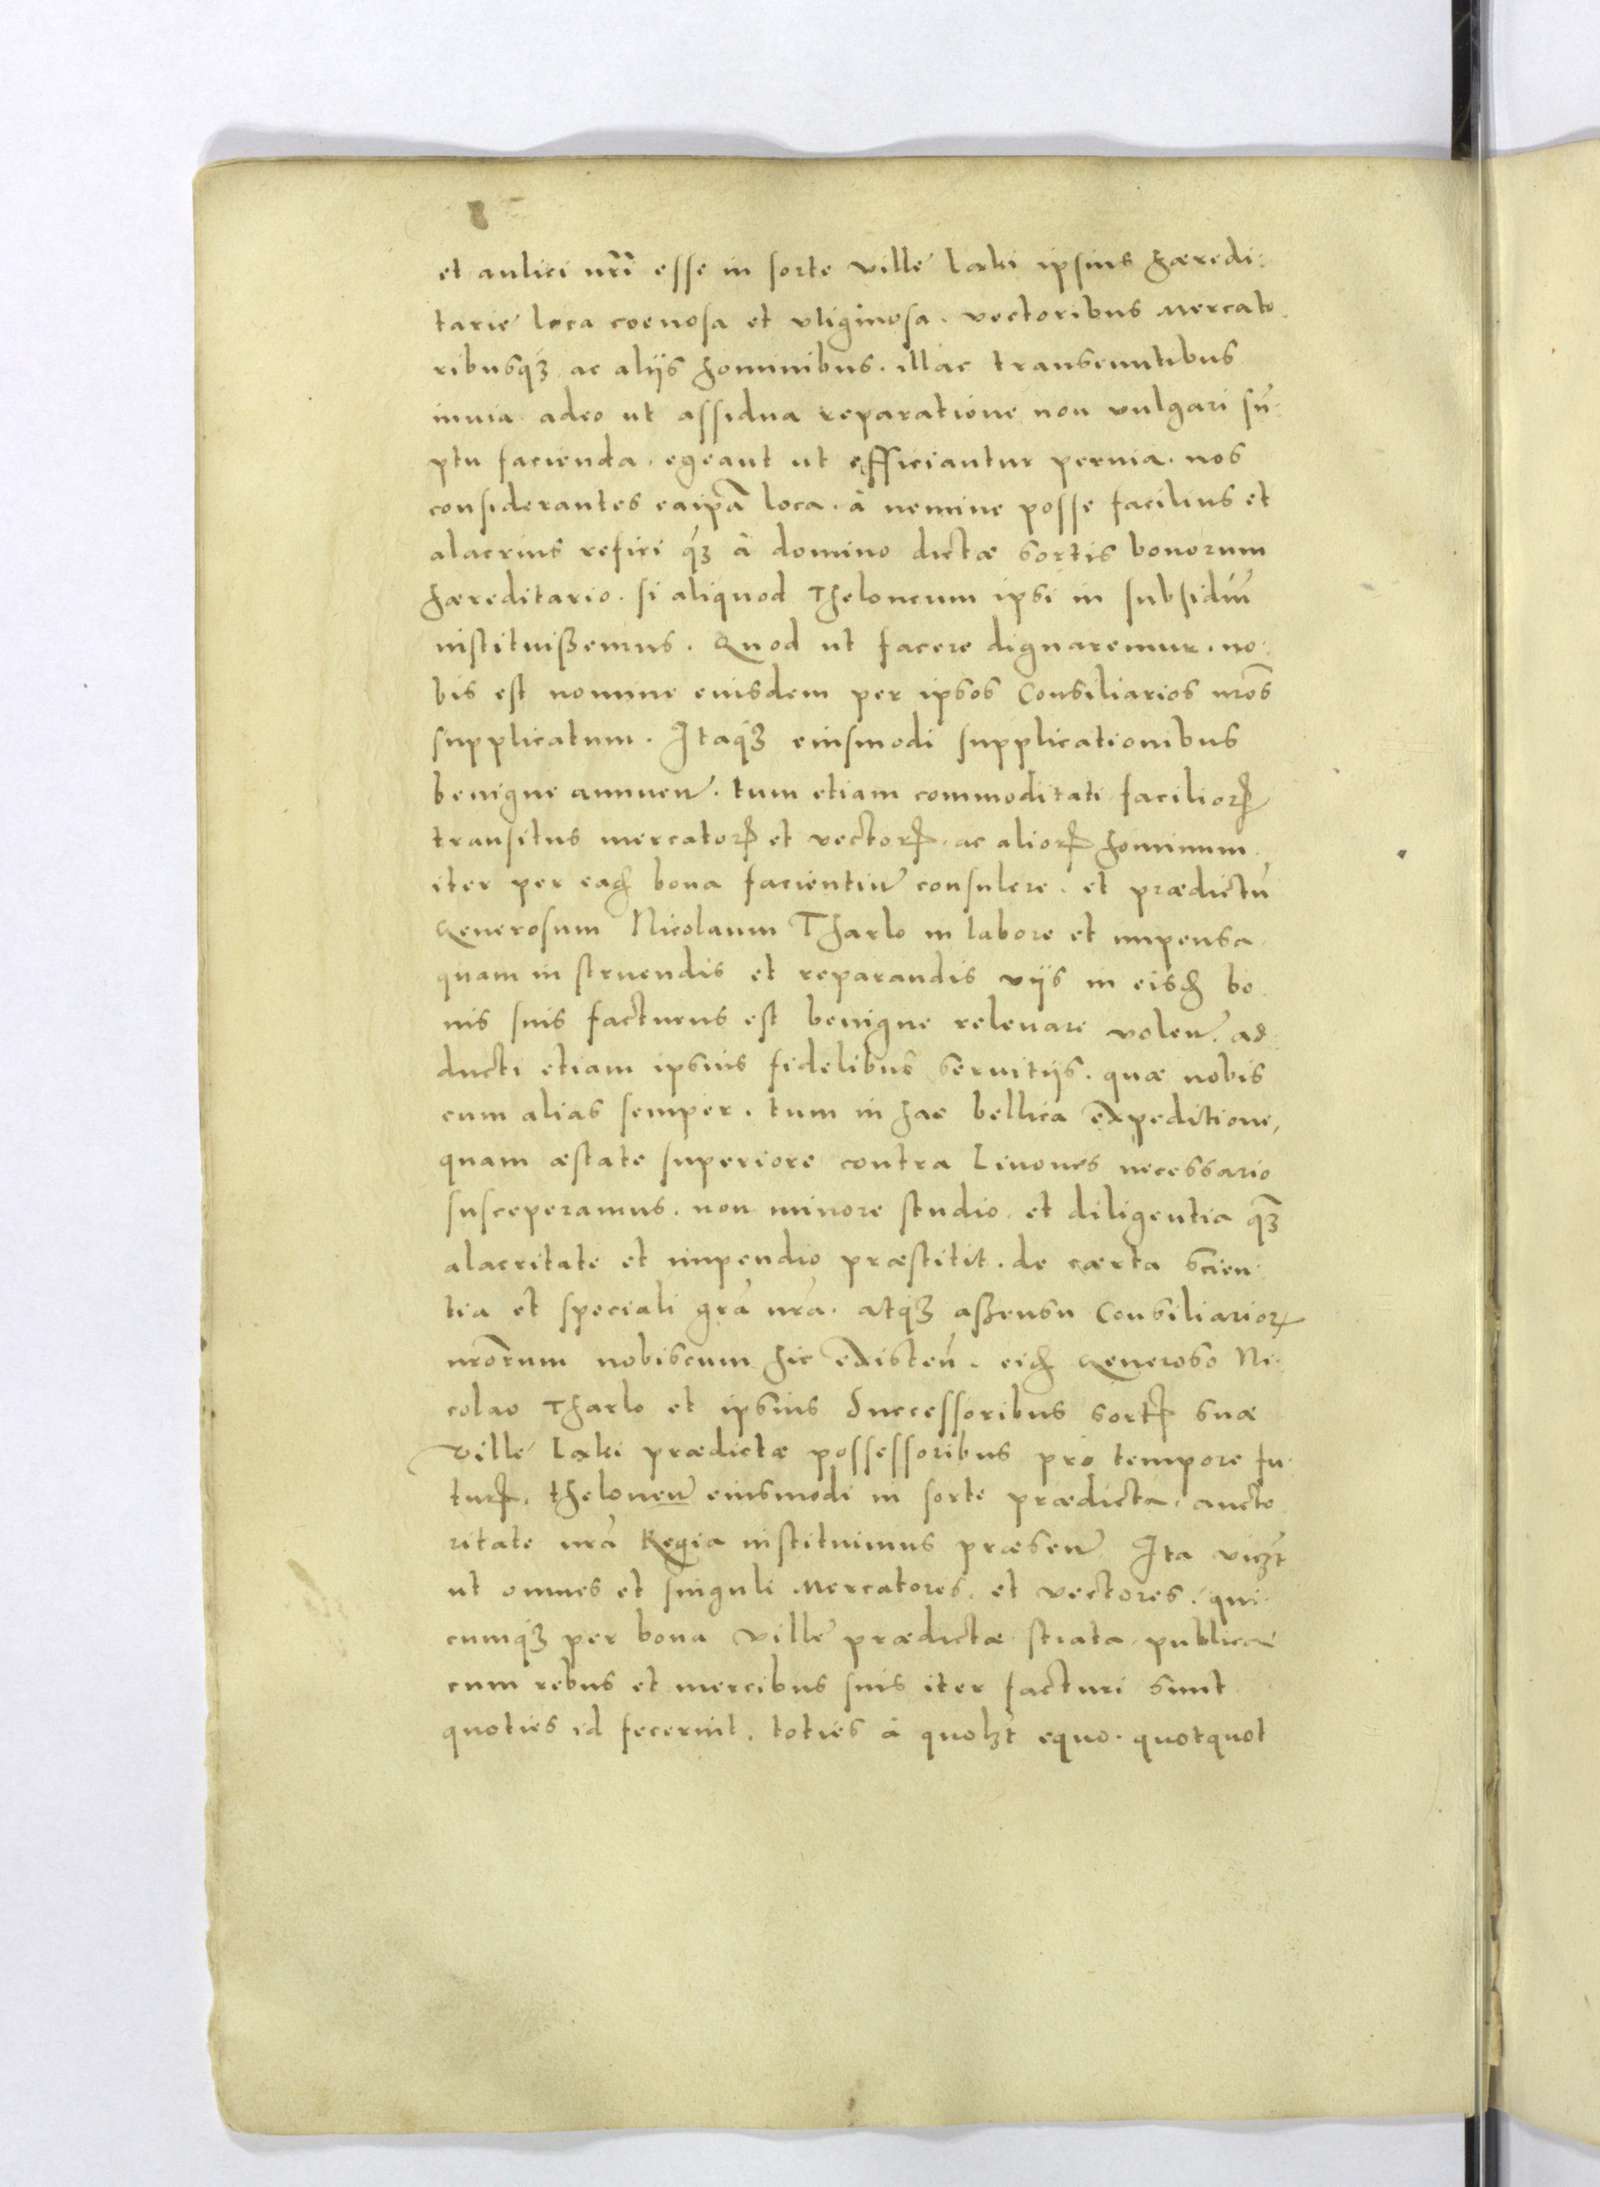 et aulici nr̃i esse in sorte ville Laki ipsius hæredi-
tarie loca coenosa et vliginosa. vectoribus Mercato
ribusqꝫ ac aliis hominibus. illac transeuntibus
inuia adeo ut assidua reparatione non vulgari sũ-
ptu facienda. egeant ut efficiantur peruia. nos
considerantes eaip̃a loca. à nemine posse facilius et
alacrius refici qꝫ à domino dictæ sortis bonorum
hæreditario. si aliquod Theloneum ipsi in subsidiũ
instituißemus. Quod ut facere dignaremur. no-
bis est nomine eiusdem per ipsos Consiliarios nr̃os
supplicatum. Itaqꝫ eiusmodi supplicationibus
benigne annuen̄. tum etiam commoditati facilioꝝ
transitus mercatoꝝ et vectoꝝ. ac alioꝝ hominum.
iter per eaꝺ bona facientiū consulere. et prædictũ
Generosum Nicolaum Tharlo in labore et impensa
quam in struendis et reparandis viis in eisꝺ bo
nis suis facturus est benigne releuare volen̄. ad-
ducti etiam ipsius fidelibus seruitiis. quæ nobis
cum alias semper. tum in hac bellica expeditione,
quam æstate superiore contra Liuones necessario
susceperamus. non minore studio. et diligentia qꝫ̃
alacritate et impendio præstitit. de cærta scien-
tia et speciali gr̃a nr̃a. atqꝫ aßensu Consiliarioꝝ
nr̃orum nobiscum hic existeñ. eiꝺ Generoso Ni-
colao Tharlo et ipsius Successoribus sortꝭ suæ
Ville Laki prædictæ possessoribus pro tempore fu-
turꝭ. theloneū eiusmodi in sorte prædicta. aucto
ritate nr̃a Regia instituimus præsen̄. Ita vicꝫt
ut omnes et singuli Mercatores. et vectores. qui-
cumqꝫ per bona Ville prædictæ strata publica
cum rebus et mercibus suis iter facturi sunt
quoties id fecerint. toties à quolꝫt equo. quotquot